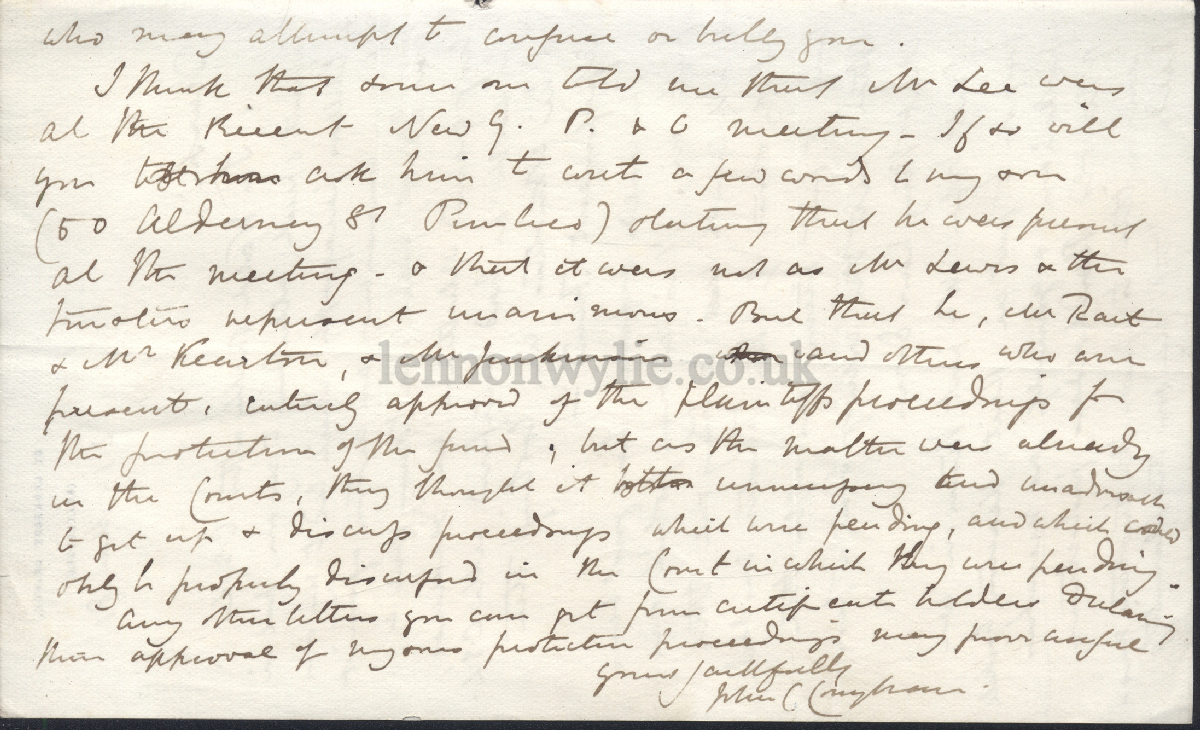 who may attempt to confuse or bully you.
I think that some one told me that Mr Lee was
at the Recent New G. P. & O meeting - If so will
you ask him to write a few words to my son
(50 Alderney St Pimlico) stating that he was present
at the meeting - & that it was not as Mr Lewis & the
trustees represent unanimous. But that he, Mr Rait
& Mr Kearton, & Mr Jenkinson and others who were
present, entirely approved of the Plaintiffs proceedings for
the protection of the fund; but as the matter was already
in the Courts, they thought it unnecessary and unadvisable
to get up & discuss proceedings which were pending, and which could
only be properly discussed in the Court in which they were pending.
Any other letters you can get from certificate holders declaring
their approval of my own protective proceedings may prove useful
yours faithfully
John C
lennonwylie.co.uk